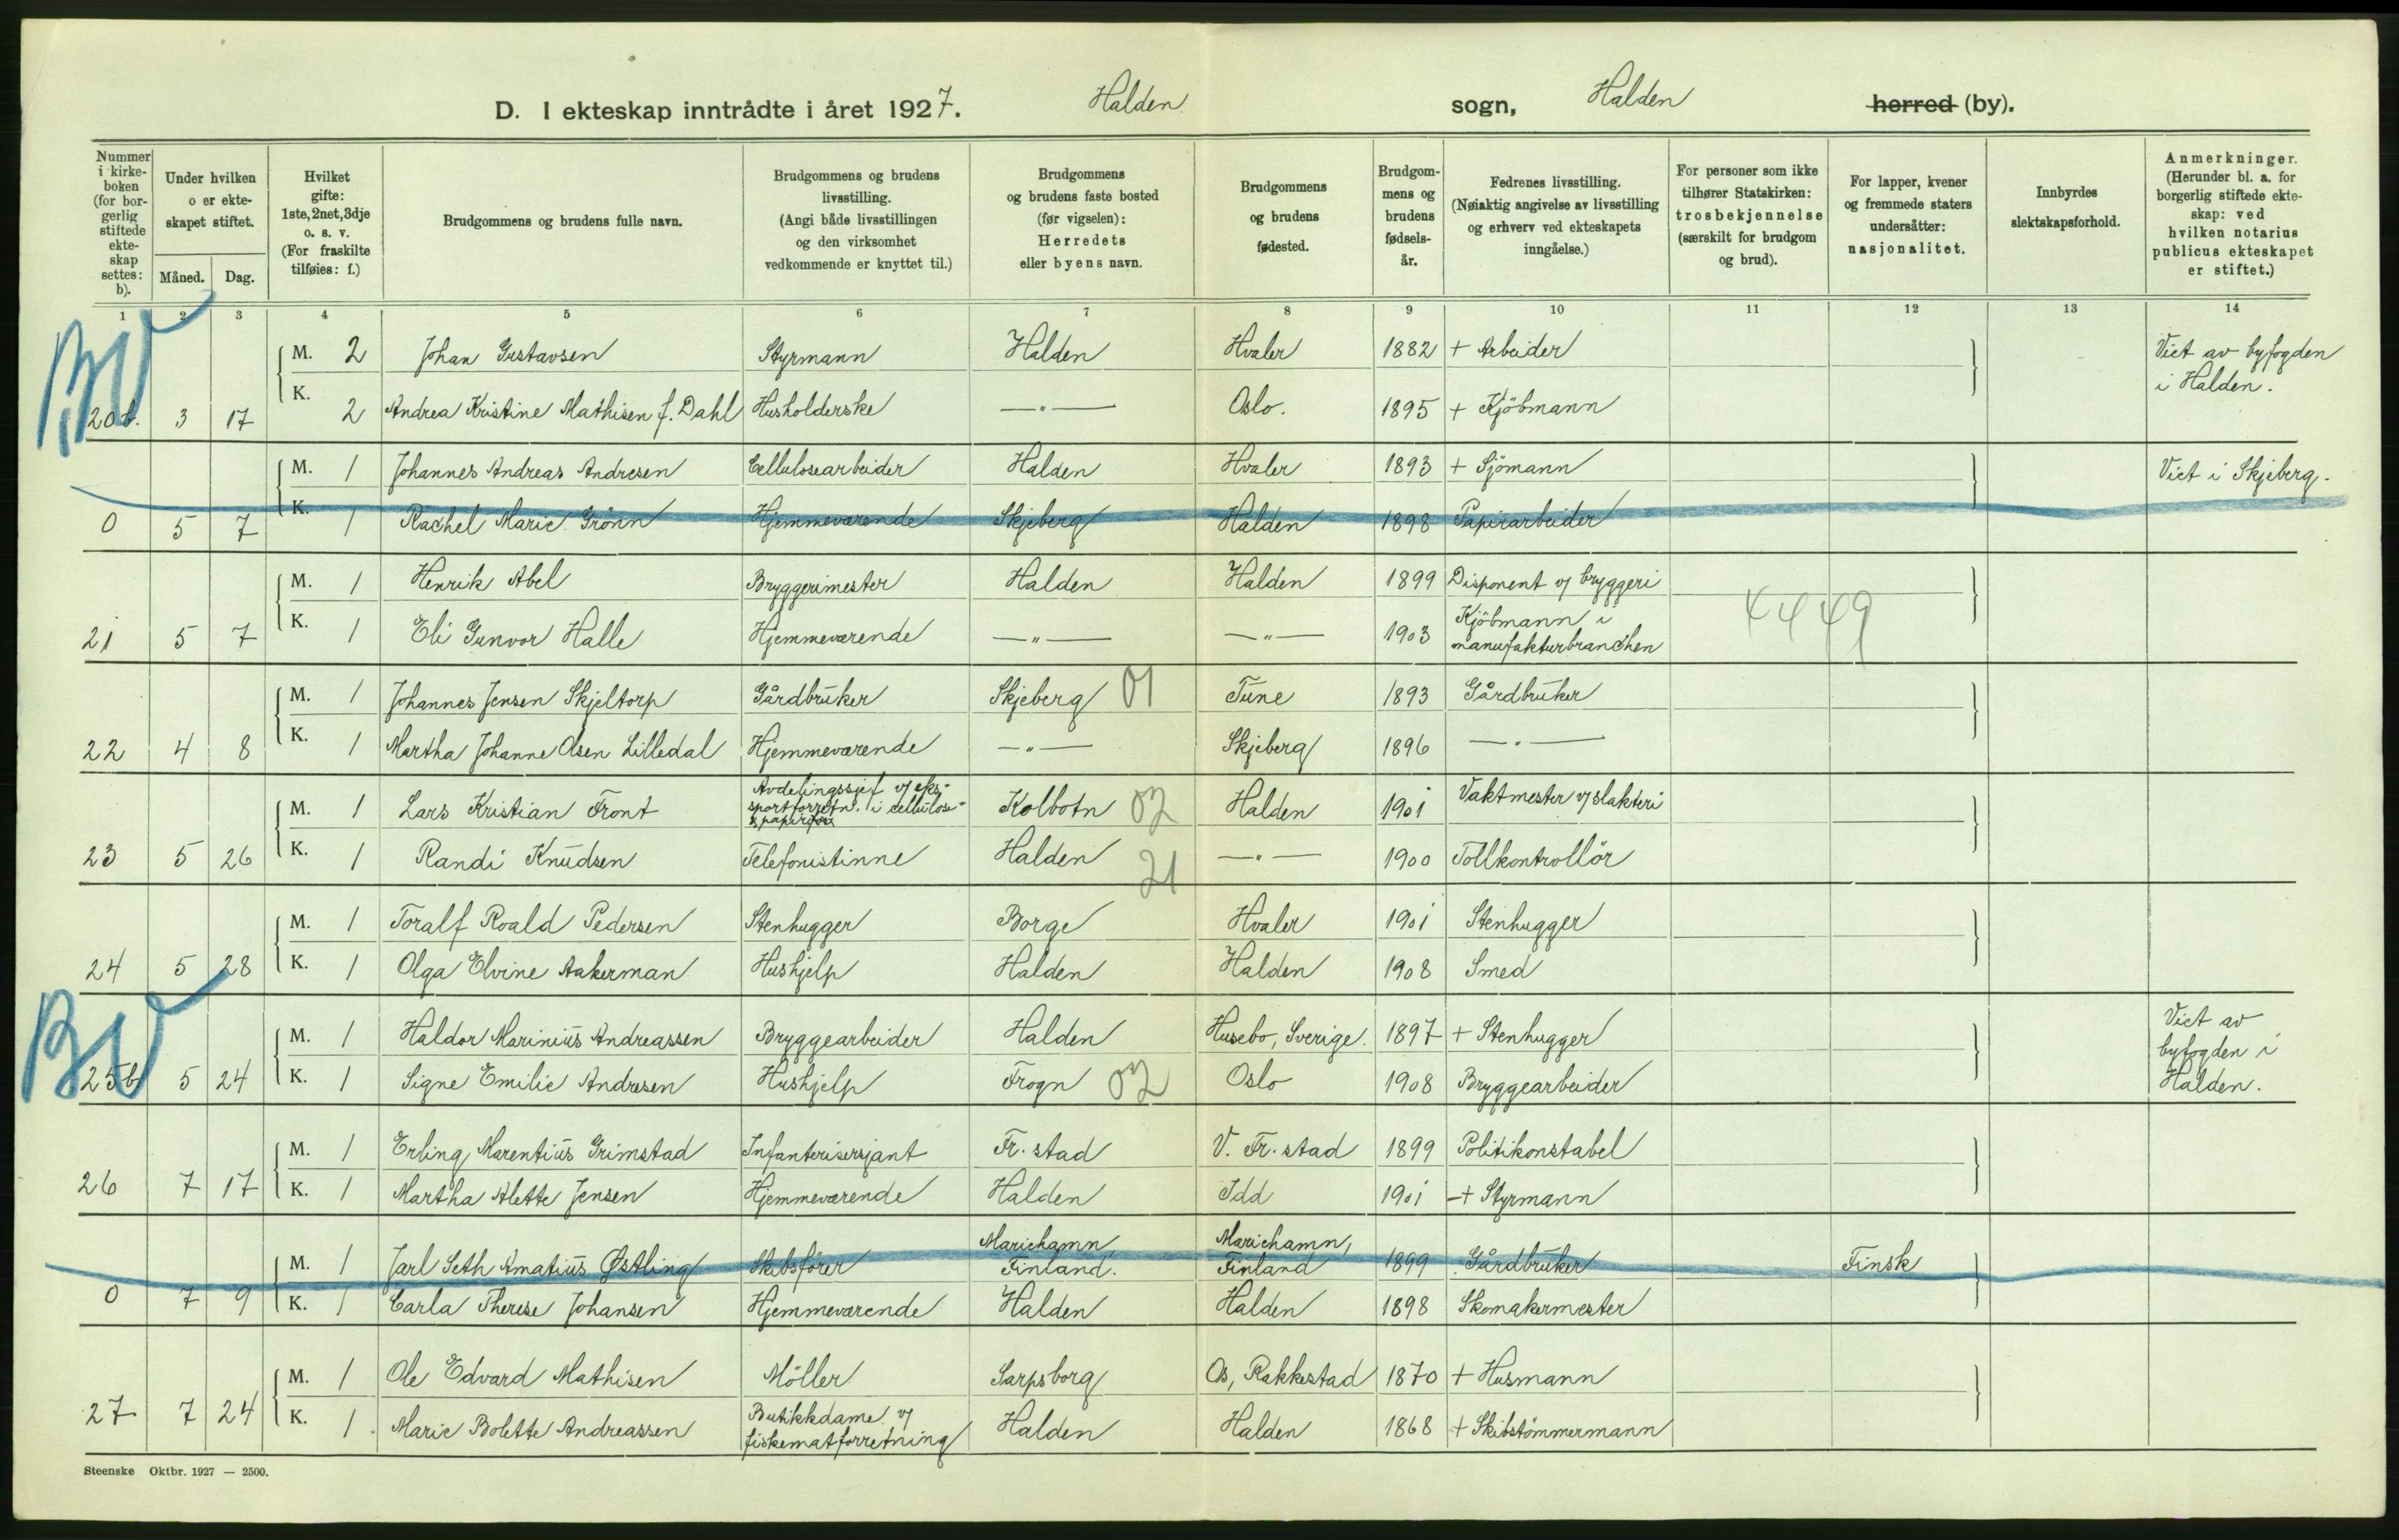 D. I ekteskap inntrådte i året 1927. Halden sogn, Halden herred (by).
Nummer i kirke-boken (for bor-gerlig stiftede ekte-skap settes: b).
Under hvilken o er ekte-skapet stiftet.
Måned. Dag.
Hvilket gifte: 1ste, 2net, 3dje o. s. v. (For fraskilte tilføies: f.)
Brudgommens og brudens fulle navn.
Brudgommens og brudens livsstilling. (Angi både livsstillingen og den virksomhet vedkommende er knyttet til.)
Brudgommens og brudens faste bosted (før vigselen): Herredets eller byens navn.
Brudgommens og brudens fødested.
Brudgom-mens og brudens fødsels-år.
Fedrenes livsstilling. (Nøiaktig angivelse av livsstilling og erhverv ved ekteskapets inngåelse.)
For personer som ikke tilhører Statskirken: trosbekjennelse (særskilt for brudgom og brud).
For lapper, kvener og fremmede staters undersåtter: nasjonalitet.
Innbyrdes slektskapsforhold.
Anmerkninger. (Herunder bl. a. for borgerlig stiftede ekte-skap: ved hvilken notarius publicus ekteskapet er stiftet.)
1 2 3 4 5 6 7 8 9 10 11 12 13 14
BV
M. 2 Johan Gustavsen Styrmann Halden Hvaler 1882 + Arbeider Viet av byfogden
i Halden.
20b. 3 17 K. 2 Andrea Kristine Mathisen f. Dahl Husholderske —"— Oslo. 1895 + Kjöbmann
M. 1 Johannes Andreas Andresen Cellulosearbeider Halden Hvaler 1893 + Sjömann Viet i Skjeberg.
0 5 7 K. 1 Rachel Marie Grönn Hjemmeværende Skjeberg Halden 1898 Papirarbeider
M. 1 Henrik Abel Bryggerimester Halden Halden 1899 Disponent v/ bryggeri
4449
21 5 7 K. 1 Eli Gunvor Halle Hjemmeværende —"— —"— 1903 Kjöbmann i
manufakturbranchen
M. 1 Johannes Jensen Skjeltorp Gårdbruker Skjeberg 01 Tune 1893 Gårdbruker
22 4 8 K. 1 Martha Johanne Olsen Lilledal Hjemmeværende —"— Skjeberg 1896 —"—
M. 1 Lars Kristian Front Avdelingssjef v/ eks-
sportforretn. i cellulose-
& papir Kolbotn 02 Halden 1901 Vaktmester v/ slakteri
23 5 26 K. 1 Randi Knudsen Telefonistinne Halden 21 —"— 1900 Tollkontrollör
M. 1 Toralf Roald Pedersen Stenhugger Borge Hvaler 1901 Stenhugger
24 5 28 K. 1 Olga Elvine Aakerman Hushjelp Halden Halden 1908 Smed
BV
M. 1 Haldor Marinius Andreassen Bryggearbeider Halden Husebo, Sverige. 1897 + Stenhugger Viet av
byfogden i
Halden.
25b 5 24 K. 1 Signe Emilie Andresen Hushjelp Frogn 02 Oslo 1908 Bryggearbeider
M. 1 Erling Marentius Grimstad Infanterisersjant Fr. stad V. Fr. stad 1899 Politikonstabel
26 7 17 K. 1 Martha Alette Jensen Hjemmeværende Halden Idd 1901 + Styrmann
M. 1 Jarl Seth Amatius Østling Skibsförer Mariehamn,
Finland. Mariehamn,
Finland 1899 Gårdbruker Finsk
0 7 9 K. 1 Carla Therese Johansen Hjemmeværende Halden Halden 1898 Skomakermester
M. 1 Ole Edvard Mathisen Möller Sarpsborg Os, Rakkestad 1870 + Husmann
27 7 24 K. 1 Marie Bolette Andreassen Butikkdame v/
fiskematforretning Halden Halden 1868 + Skibstömmermann
Steenske Oktbr. 1927 — 2500.